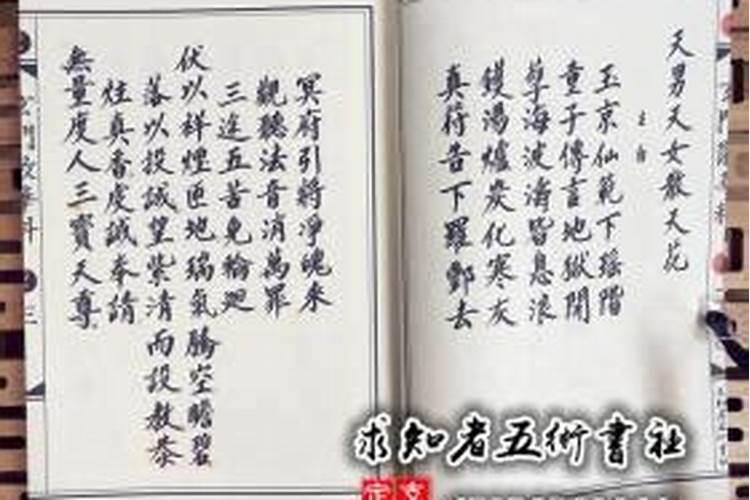 天男天女散天花
玉京仙範下瑶階
童子傳言地獄開
孽海波濤皆息浪
鑊湯爐炭化寒灰
真符告下羅酆去
冥府引將净魄来
觀聽法音消萬罪
三途五苦免輪迴
伏以祥煙匝地瑞氣騰空瞻碧
落以投誠望紫清而設教恭
炷真香虔誠奉請
無量度人三寶天尊
求知者五術書社